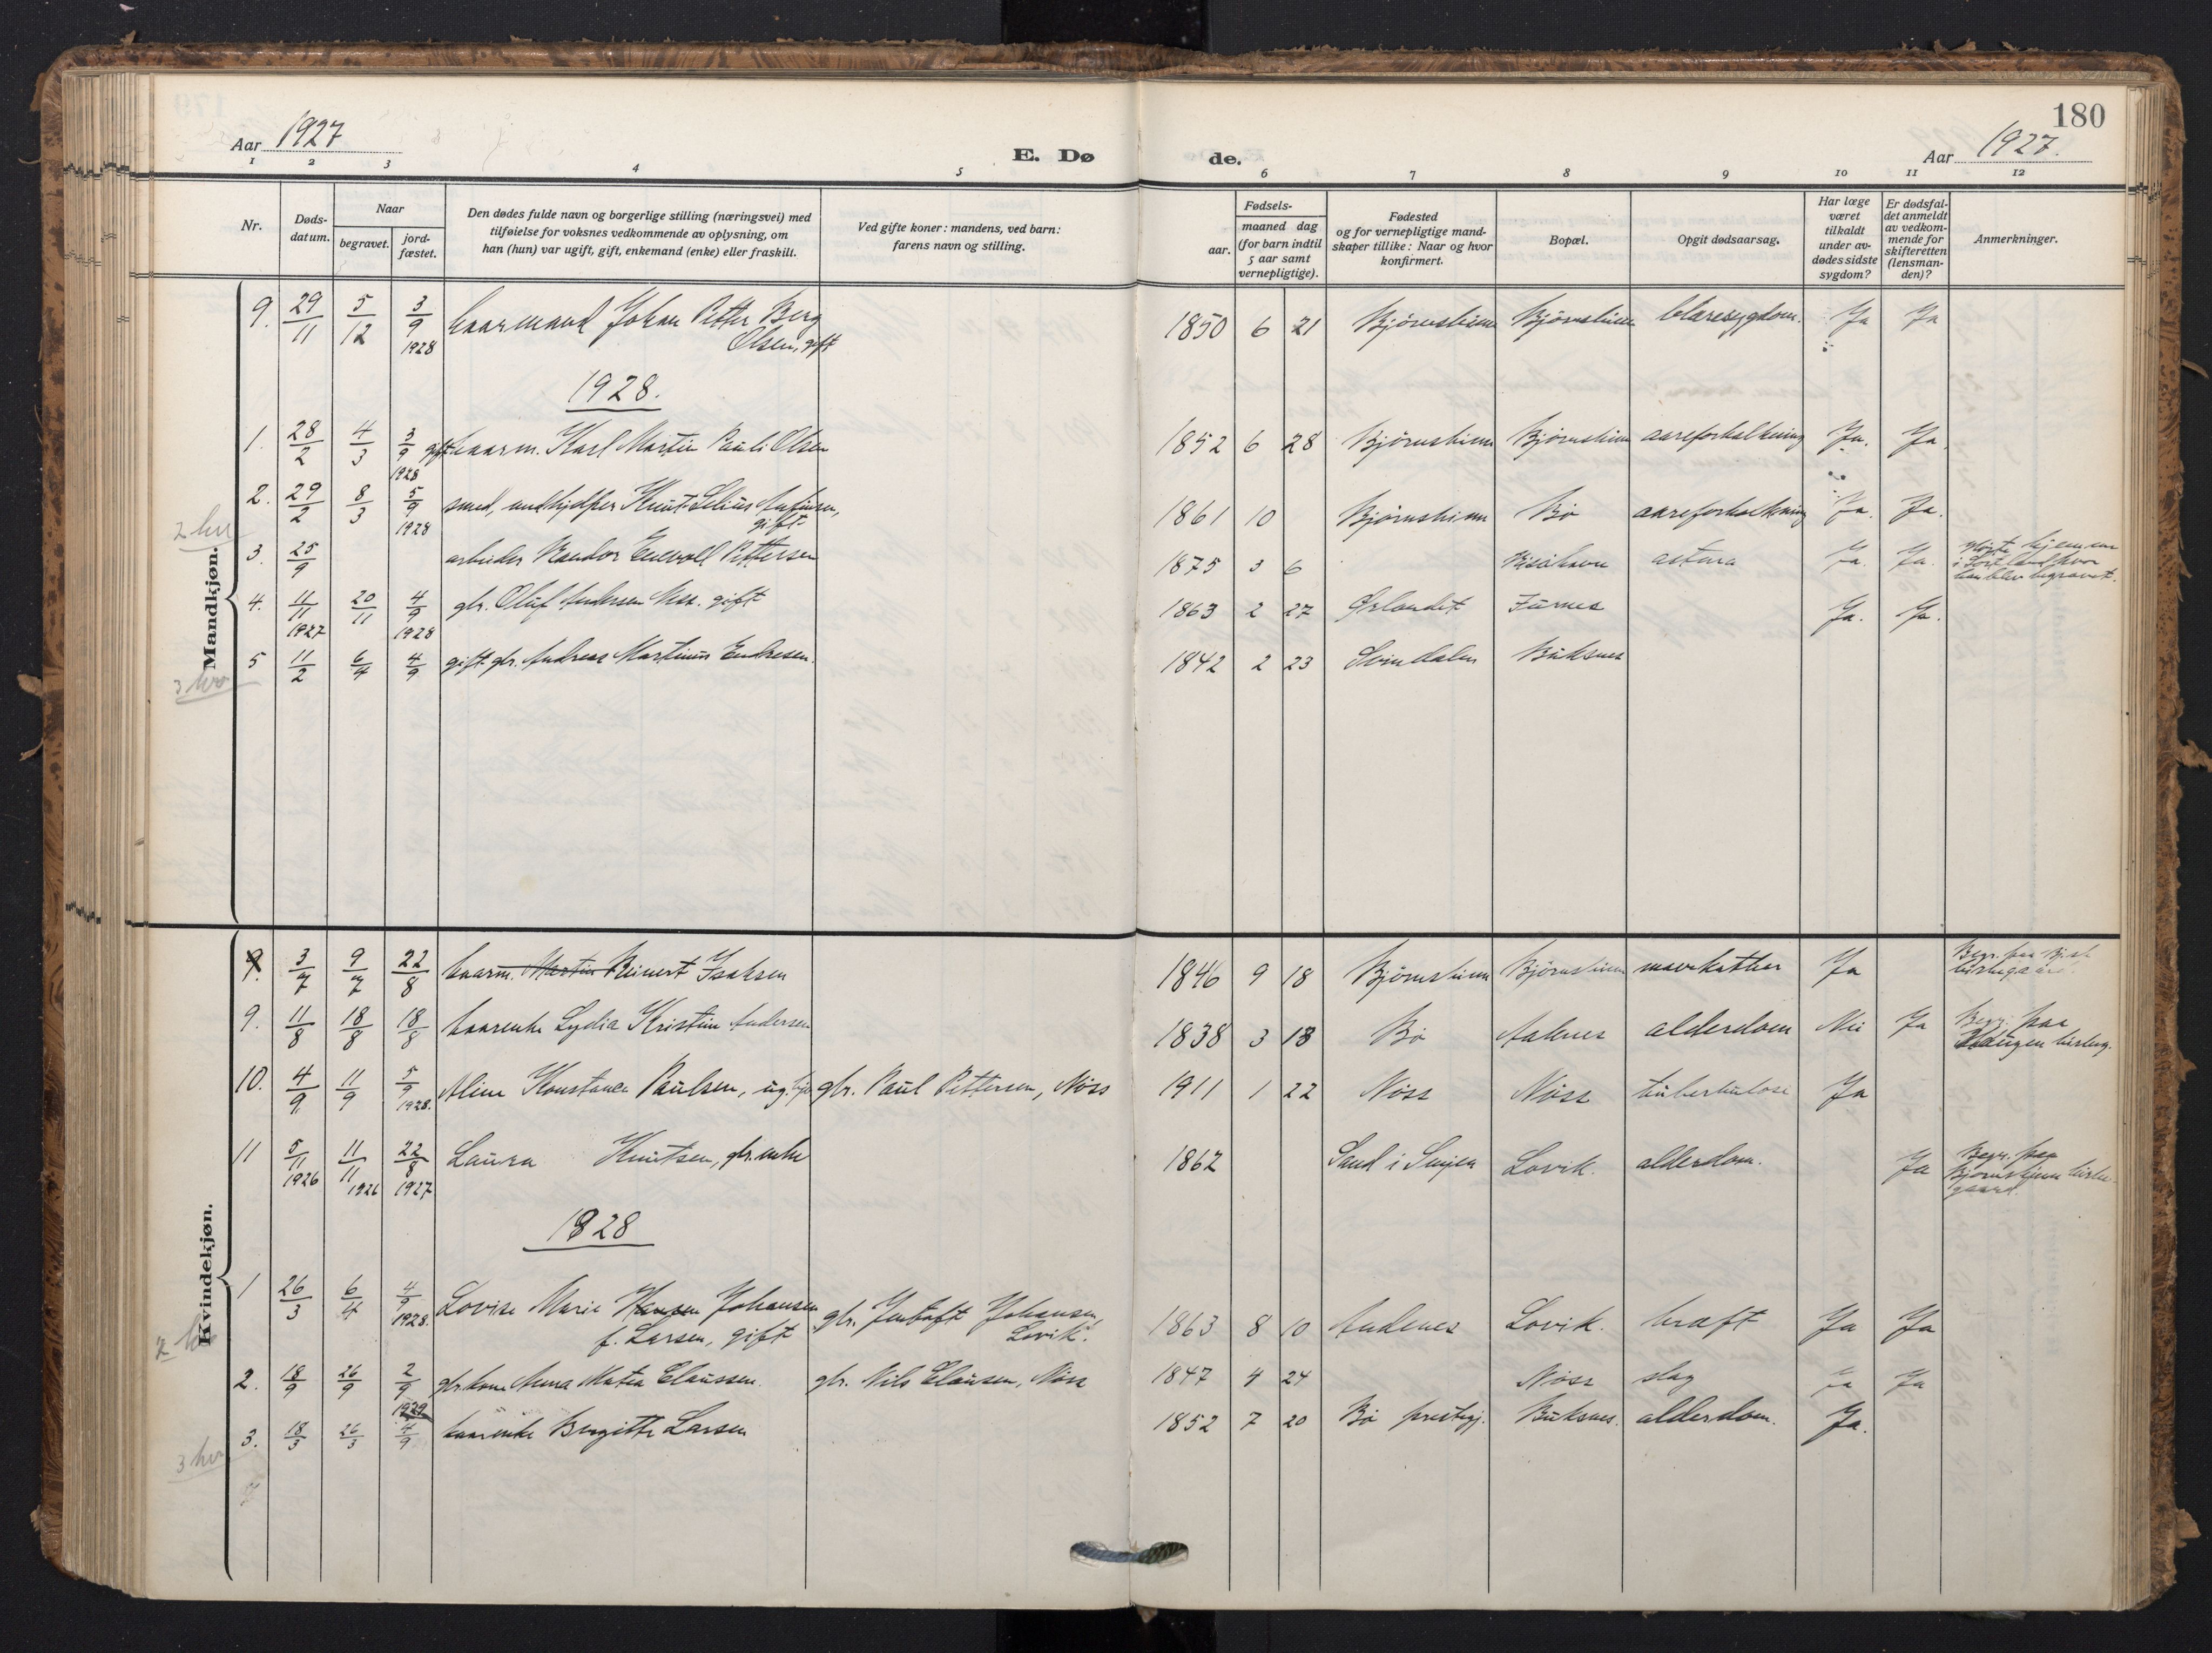 180
Aar 1927
E. Dø
de.
Aar 1927.
1 2 3 4 5 6 7 8 9 10 11 12
Nr.
Døds-
datum.
Naar
begravet.
jord-
fæstet.
Den dødes fulde navn og borgerlige stilling (næringsvei) med
tilføielse for voksnes vedkommende av oplysning, om
han (hun) var ugift, gift, enkemand (enke) eller fraskilt.
Ved gifte koner: mandens, ved barn:
farens navn og stilling.
Fødsels-
aar.
maaned dag
(for barn indtil
5 aar samt
vernepligtige).
Fødested
og for vernepligtige mand-
skaper tillike: Naar og hvor
konfirmert.
Bopæl.
Opgit dødsaarsag.
Har læge
været
tilkaldt
under av-
dødes sidste
sygdom?
Er dødsfal-
det anmeldt
av vedkom-
mende for
skifteretten
(lensman-
den)?
Anmerkninger.
Mandkjøn.
9. 29/11 5/12 3/9 1928 kaarmand Johan Petter Berg
Olsen, gift
1850 6 21 Bjørnskinn Bjørnskinn blæresygdom. Ja Ja
1928.
1. 28/2 4/3 3/9 1928 gift kaarm. Karl Martin Pauli Olsen 1852 6 28 Bjørnskinn Bjørnskinn aareforkalkning Ja. Ja.
2. 29/2 8/3 5/9 1928 smed, Knut
gift
1861 10 Bjørnskinn Bø aareforkalkning Ja. Ja.
3. 25/9 arbeider Enevold Pettersen 1875 3 6 Risøhavn astma Ja. Ja.
han blev begravet.
4. 11/11 1927 20/11 4/9 1928 gbr. Oluf Andersen gift 1863 2 27 Ørlandet Ja. Ja.
5 11/2 6/4 4/9 gift gbr. Andreas Martinus Endresen. 1842 2 23 Svindalen Buksnes
2 hv
3 hv
Kvindekjøn.
9. 3/7 9/7 22/8 kaarm. Martin Reinert Isaksen 1846 9 18 Bjørnskinn Bjørnskinn mavekathar Ja Begr. paa
kirkegaard.
9. 11/8 18/8 18/8 kaarenke Lydia Kristine Andersen 1838 3 18 Bø Aaknes alderdom Nei Ja Begr. paa
kirkeg.
10. 4/9 11/9 5/9 1928. Aline Konstance Paulsen, ug. gbr. Paul Pettersen, Nøss 1911 1 22 Nøss Nøss tuberkulose Ja
11 5/11 1926 11/11 1926 22/8 1927 Laura Knutsen, gbr. enke 1862 Sand i Senjen Lovik. alderdom. Ja Begr. paa
Bjørnskinn kirke-
gaard.
1928
1 26/3 6/4 4/9 1928. Lovise Marie Hansen Johansen
f. Larsen, gift
gbr. Johansen,
Lovik.
1863 8 10 Andenes Lovik. kræft Ja Ja
2. 18/9 26/9 2/9 1929 gbr. kone Anna Matea Claussen. gbr. Nils Clausen, Nøss 1847 4 24 Nøss slag Ja Ja
3. 18/3 26/3 4/9 kaarenke Bergitte Larsen 1852 7 20 Bø prestegj. Buksnes. alderdom. Ja.
2 hv
3 hv